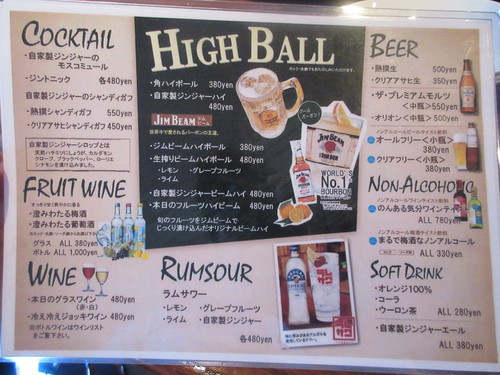 COCKTAIL
・自家製ジンジャーの
モスコミュール
・ジントニック 各480yen
自家製ジンジャーのシャンディガフ
・熱撰シャンディガフ 550yen
・クリアアサヒシャンディガフ 450yen
自家製ジンジャーシロップとは
FRUIT WINE
・澄みわたる梅酒
・澄みわたる葡萄酒
グラス ALL 380yen
ボトル ALL 1,000yen
WINE
・本日のグラスワイン 480yen
(赤・白)
・冷え冷えジョッキワイン 480yen
※ボトルワインはワインリスト
をご覧下さい。
HIGH BALL
・角ハイボール 380yen
・自家製ジンジャーハイ
480yen
JIM BEAM ジムビーム
世界中で愛されるバーボンの王道。
・ジムビームハイボール 380yen
・生搾りビームハイボール 480yen
・レモン ・グレープフルーツ
・ライム
・自家製ジンジャービームハイ 480yen
・本日のフルーツハイビーム 480yen
旬のフルーツをジムビームで
じっくり漬け込んだオリジナルビームハイ
JIM BEAM
BOURBON
WORLD'S
No.1
BOURBON
RUMSOUR
ラムサワー
・レモン ・グレープフルーツ
・ライム ・自家製ジンジャー
各480yen
BEER
・熱撰生 500yen
・クリアアサヒ生 350yen
・ザ・プレミアムモルツ
<中瓶> 550yen
・オリオン<中瓶> 500yen
オールフリー<小瓶>
380yen
クリアフリー<小瓶>
380yen
NON-ALCOHOLIC
のんある気分ワインテイスト
ALL 780yen
まるで梅酒なノンアルコール
ALL 330yen
SOFT DRINK
・オレンジ100%
・コーラ
・ウーロン茶 ALL 280yen
・自家製ジンジャーエール
ALL 380yen